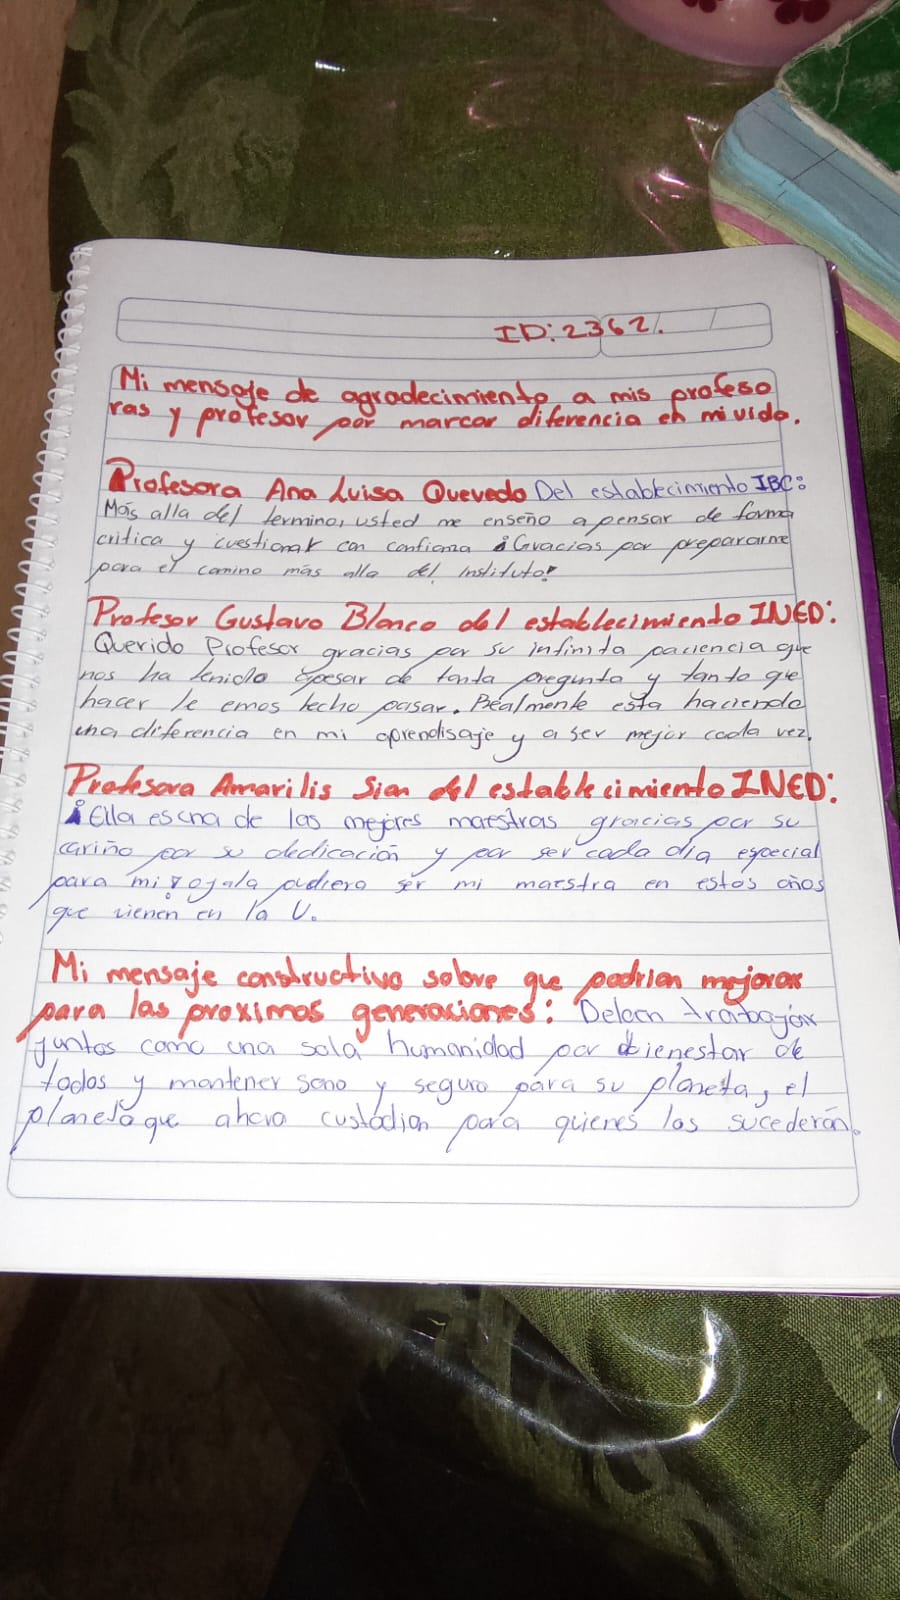 ID: 2362.
Mi mensaje de agradecimiento a mis profeso
ras y profesor por marcar diferencia en mi vida.
Profesora Ana Luisa Quevedo Del establecimiento IBC:
Más alla del termino, usted me enseño a pensar de forma
critica y cuestionar con confianza ¡Gracias por prepararme
para el camino más alla del Instituto!
Profesor Gustavo Blanco del establecimiento INED:
Querido Profesor gracias por su infinita paciencia que
nos ha tenido apesar de tanta pregunta y tanto que
hacer le emos hecho pasar. Realmente esta haciendo
una diferencia en mi aprendisaje y a ser mejor cada vez.
Profesora Amarilis Sian del establecimiento INED:
¡Ella es una de las mejores maestras gracias por su
cariño por su dedicación y por ser cada dia especial
para mi! ojala pudiera ser mi maestra en estos años
que vienen en la U.
Mi mensaje constructivo sobre que podrian mejorar
para las proximas generaciones: Deben trabajar
juntos como una sola humanidad por bienestar de
todos y mantener sano y seguro para su planeta, el
planeta que ahora custodian para quienes los sucederán.